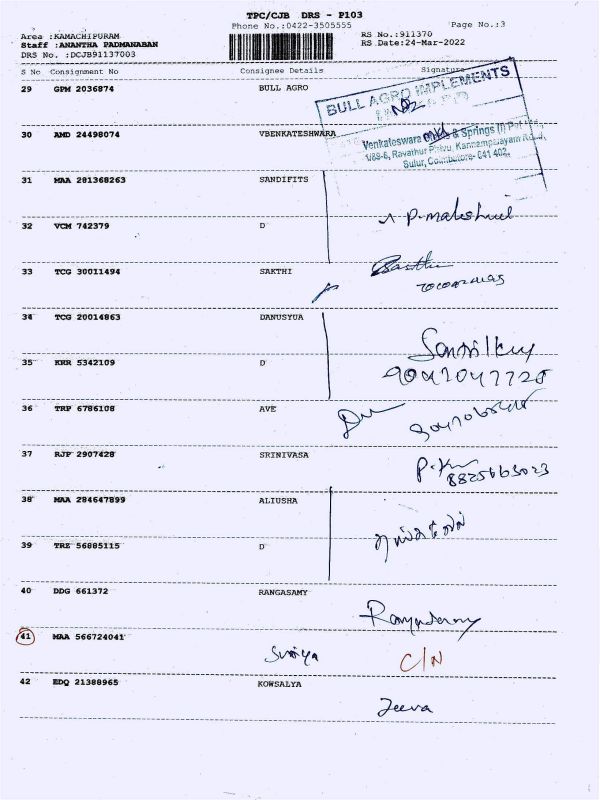 TPC/CJB DRS - P103
Phone No.:0422-3505555
Page No.:3
Area :KAMACHIPURAM
RS No.:911370
Staff :ANANTHA PADMANABAN
RS Date:24-Mar-2022
DRS No. :DCJB91137003
S No Consignment No Consignee Details Signature
29 GPM 2036874 BULL AGRO
BULL AGRO IMPLEMENTS
30 AMD 24498074 VBENKATESHWARA
Venkateswara & Springs (I) Pvt Ltd.,
1/89-6, Ravathur Pirivu, Kannampalayam Road,
Sulur, Coimbatore- 641 402.
31 MAA 281368263 SANDIFITS
32 VCM 742379 D
33 TCG 30011494 SAKTHI
34 TCG 20014863 DANUSYUA
35 KRR 5342109 D
36 TRP 6786108 AVE
37 RJP 2907428 SRINIVASA
38 MAA 284647899 ALIUSHA
39 TRZ 56885115 D
40 DDG 661372 RANGASAMY
41 MAA 566724041
C/N
42 EDQ 21388965 KOWSALYA
Jeeva